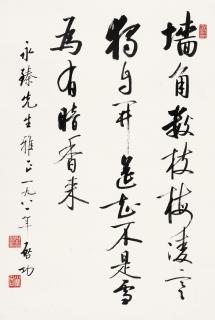 墙角数枝梅凌寒
獨自開遥知不是雪
為有暗香来
永臻先生雅正一九八年 啓功